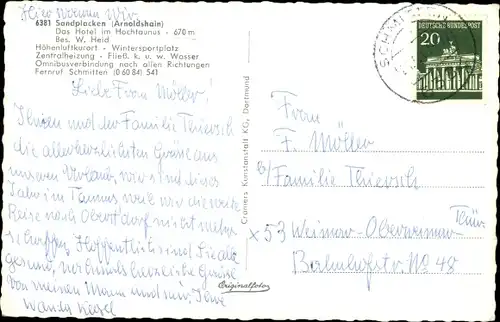 Hier wohnen Wir.
6381 Sandplacken (Arnoldshain)
Das Hotel im Hochtaunus - 670 m
Bes. W. Heid
Höhenluftkurort - Wintersportplatz
Zentralheizung - Fließ. k. u. w. Wasser
Omnibusverbindung nach allen Richtungen
Fernruf Schmitten (0 60 84) 541
Liebe Frau Möller!
Ihnen und der Familie Thiersch
die allerherzlichsten Grüße aus
unserem Urlaub, wir sind dieses
Jahr im Taunus weil wir die weite
Reise nach Oberstdorf nicht mehr
schaffen. Hoffentlich sind Sie alle
gesund, nochmals herzliche Grüße
von meinem Mann und mir, Ihre
Wanda
Cramers Kunstanstalt KG, Dortmund
Originalfoto
SCHMITTEN
DEUTSCHE BUNDESPOST
20
Frau
F. Möller
b/Familie Thiersch
x 53 Weimar-Oberweimar
Thür.
Bahnhofstr. No 48